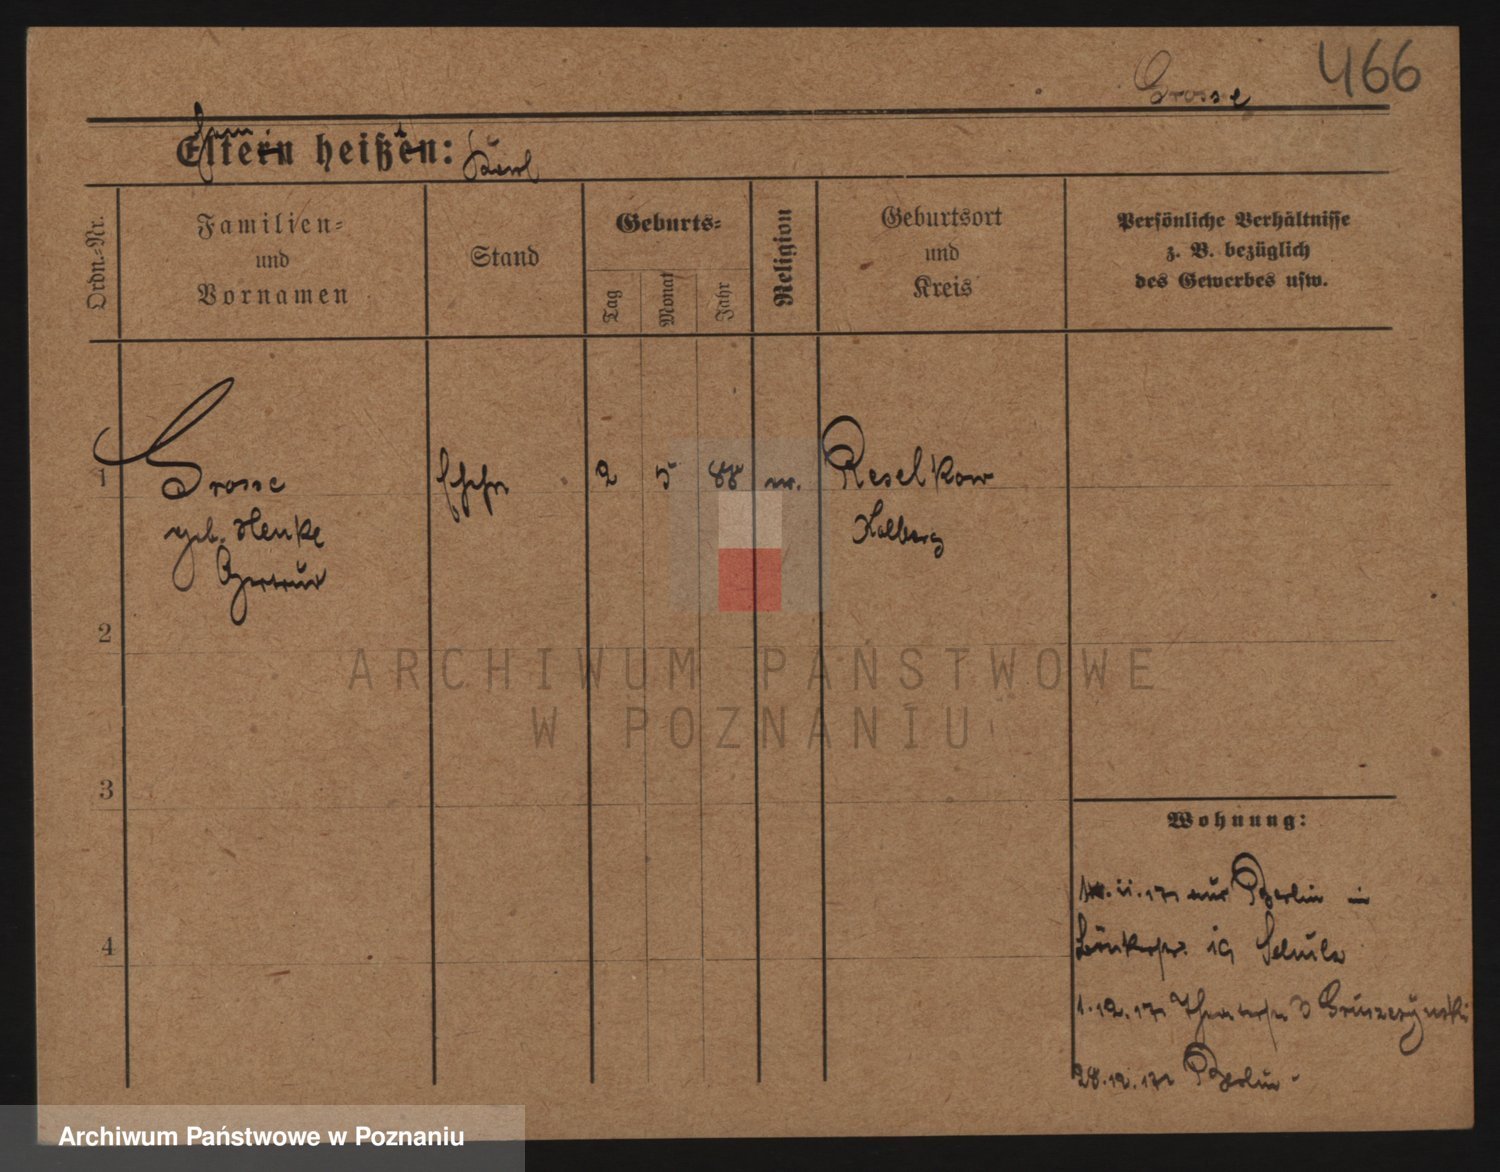 466
Grosse
Eltern heißen: Karl
Ordn.-Nr.
Familien-
und
Vornamen
Stand
Geburts-
Tag
Monat
Jahr
Religion
Geburtsort
und
Kreis
Persönliche Verhältnisse
z. B. bezüglich
des Gewerbes usw.
1
Grosse
geb. Henke
Gertrud
2 5 88
Reselkow
Kolberg
2
3
4
Wohnung:
Berlin in
19 Schulz
1.12.17 3 Gruszczynski
28.12.17 Berlin
ARCHIWUM PAŃSTWOWE
W POZNANIU
Archiwum Państwowe w Poznaniu